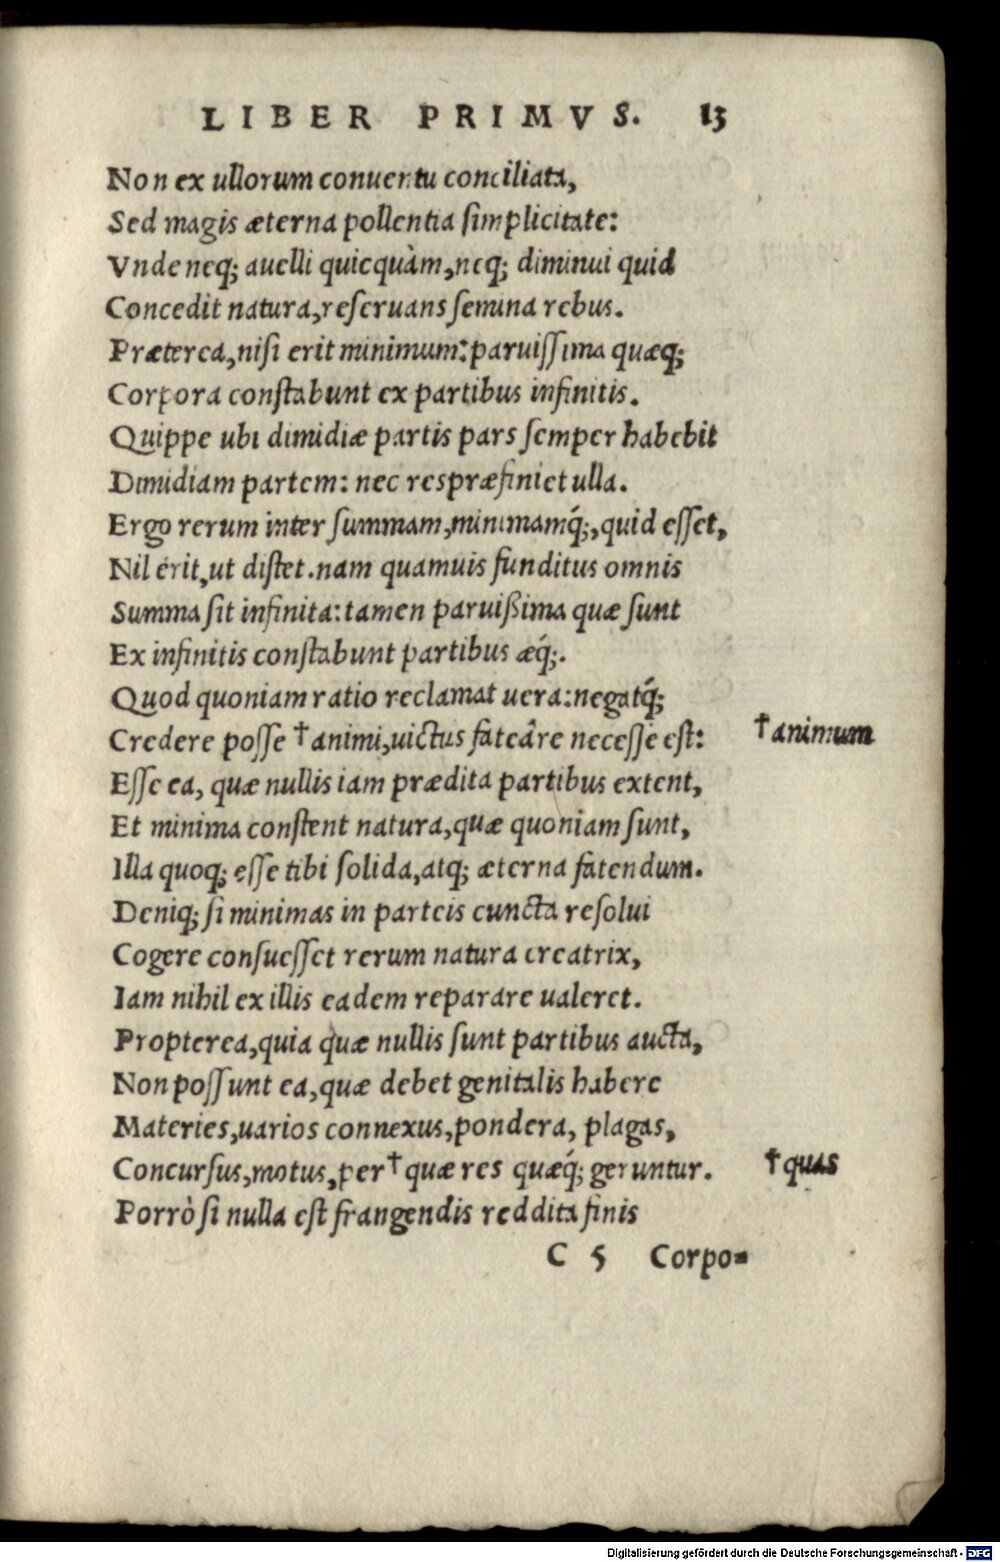 LIBER PRIMVS. 13
Non ex ullorum conuentu conciliata,
Sed magis æterna pollentia ſimplicitate:
Vnde neq; auelli quicquàm, neq; diminui quid
Concedit natura, reſeruans ſemina rebus.
Præterea, niſi erit minimum: paruiſſima quæq;
Corpora conſtabunt ex partibus infinitis.
Quippe ubi dimidiæ partis pars ſemper habebit
Dimidiam partem: nec res præfiniet ulla.
Ergo rerum inter ſummam, minimamq́;, quid eſſet,
Nil érit, ut diſtet. nam quamuis funditus omnis
Summa ſit infinita: tamen paruißima quæ ſunt
Ex infinitis conſtabunt partibus æq́;.
Quod quoniam ratio reclamat uera: negatq́;
Credere poſſe †animi, uictus fateâre neceſſe eſt: †animum
Eſſe ea, quæ nullis iam prædita partibus extent,
Et minima conſtent natura, quæ quoniam ſunt,
Illa quoq; eſſe tibi ſolida, atq; æterna fatendum.
Deniq; ſi minimas in parteis cuncta reſolui
Cogere conſueſſet rerum natura creatrix,
Iam nihil ex illis eadem reparare ualeret.
Propterea, quia quæ nullis ſunt partibus aucta,
Non poſſunt ea, quæ debet genitalis habere
Materies, uarios connexus, pondera, plagas,
Concurſus, motus, per †quæ res quæq́; geruntur. †quas
Porrò ſi nulla eſt frangendis reddita finis
C 5 Corpo=
Digitalisierung gefördert durch die Deutsche Forschungsgemeinschaft - DFG